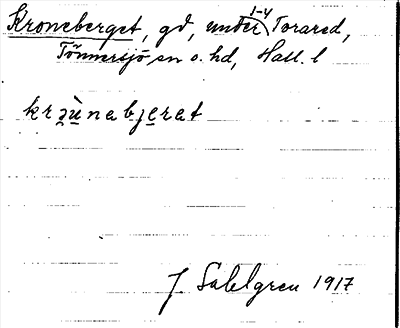 Kroneberget, gd, under 1-4 Torared,
Tönnersjö sn o. hd, Hall. l
krəùnabjerat
J Sahlgren 1917